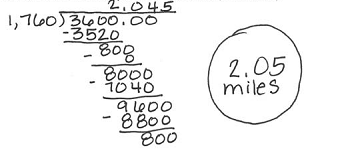 2.045
1,760)3600.00
-3520
800
- 0
8000
- 7040
9600
- 8800
800
2.05
miles